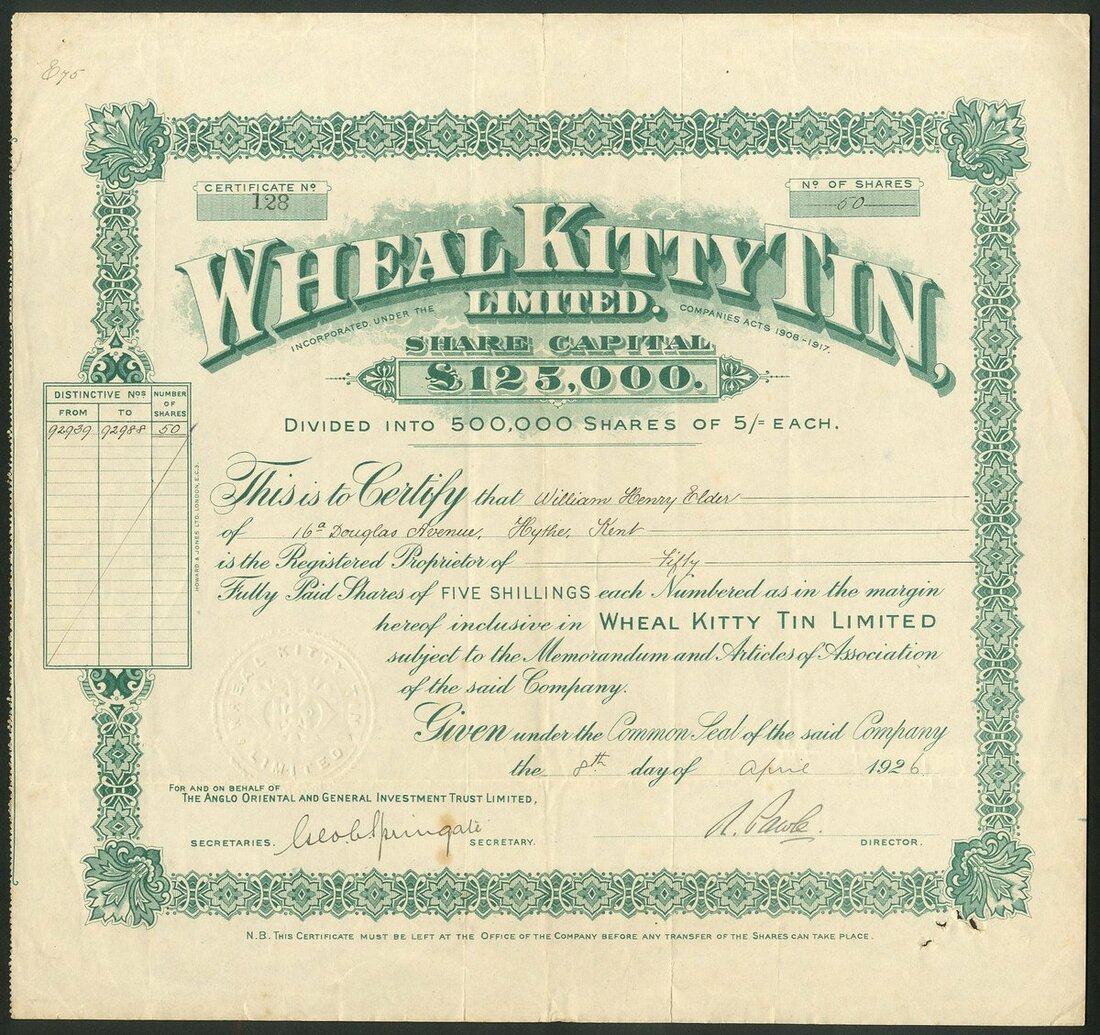 £75
CERTIFICATE No
128
No OF SHARES
50
WHEAL KITTY TIN,
LIMITED.
INCORPORATED UNDER THE COMPANIES ACTS 1908-1917.
SHARE CAPITAL
£125,000.
DIVIDED INTO 500,000 SHARES OF 5/= EACH.
DISTINCTIVE Nos
NUMBER OF SHARES
FROM TO
92939 92988 50
This is to Certify that William Henry Elder
of 16a Douglas Avenue, Hythe, Kent
is the Registered Proprietor of Fifty
Fully Paid Shares of FIVE SHILLINGS each Numbered as in the margin
hereof inclusive in WHEAL KITTY TIN LIMITED
subject to the Memorandum and Articles of Association
of the said Company.
Given under the Common Seal of the said Company
the 8th day of April 1926
HOWARD & JONES LTD. LONDON, E.C.3.
WHEAL KITTY TIN
LIMITED
FOR AND ON BEHALF OF
THE ANGLO ORIENTAL AND GENERAL INVESTMENT TRUST LIMITED,
SECRETARIES. Geo. C. Springate SECRETARY.
DIRECTOR.
N.B. THIS CERTIFICATE MUST BE LEFT AT THE OFFICE OF THE COMPANY BEFORE ANY TRANSFER OF THE SHARES CAN TAKE PLACE.